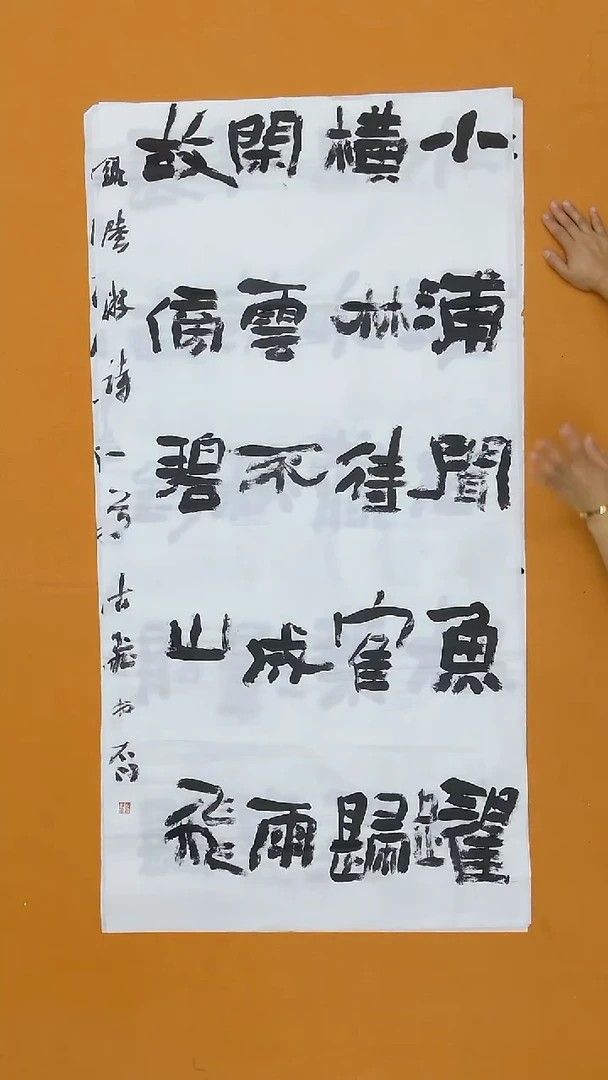 小浦聞魚躍
橫林待隺歸
閑雲不成雨
故傍碧山飛
錄陸游詩一首